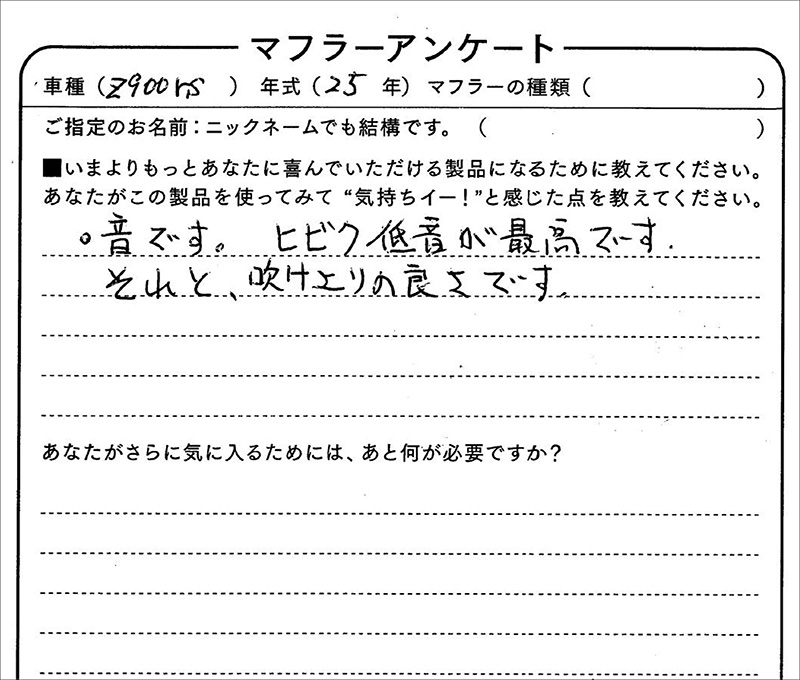 マフラーアンケート
車種（Z900rs）年式（25年）マフラーの種類（　）
ご指定のお名前：ニックネームでも結構です。（　）
■いまよりもっとあなたに喜んでいただける製品になるために教えてください。
あなたがこの製品を使ってみて“気持ちイー！”と感じた点を教えてください。
○音です。ヒビク低音が最高です.
それと、吹け上りの良さです。
あなたがさらに気に入るためには、あと何が必要ですか？